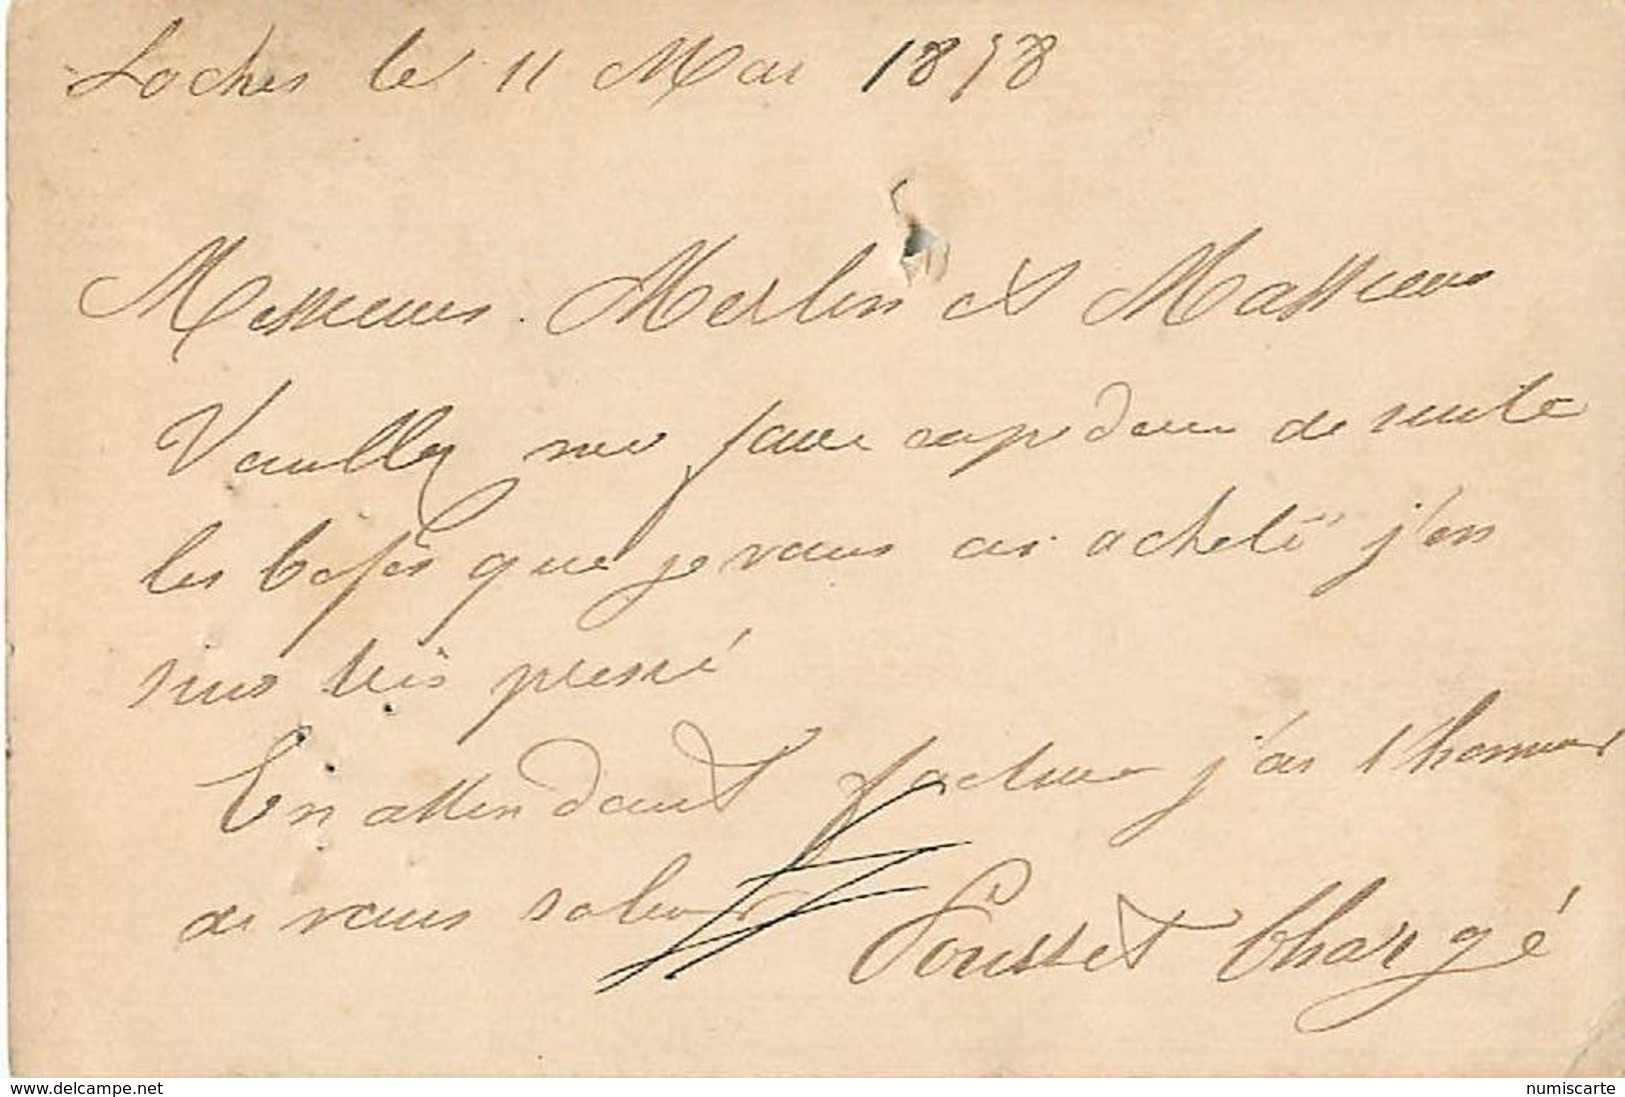 Loches le 11 Mai 1878
Messieurs. Merlin et Massieu
Veuillez me faire expedier de suite
les cafés que je vous ai acheté j'en
suis très pressé
En attendant facture j'ai l'honneur
de vous saluer
Pousset Chargé
www.delcampe.net
numiscarte